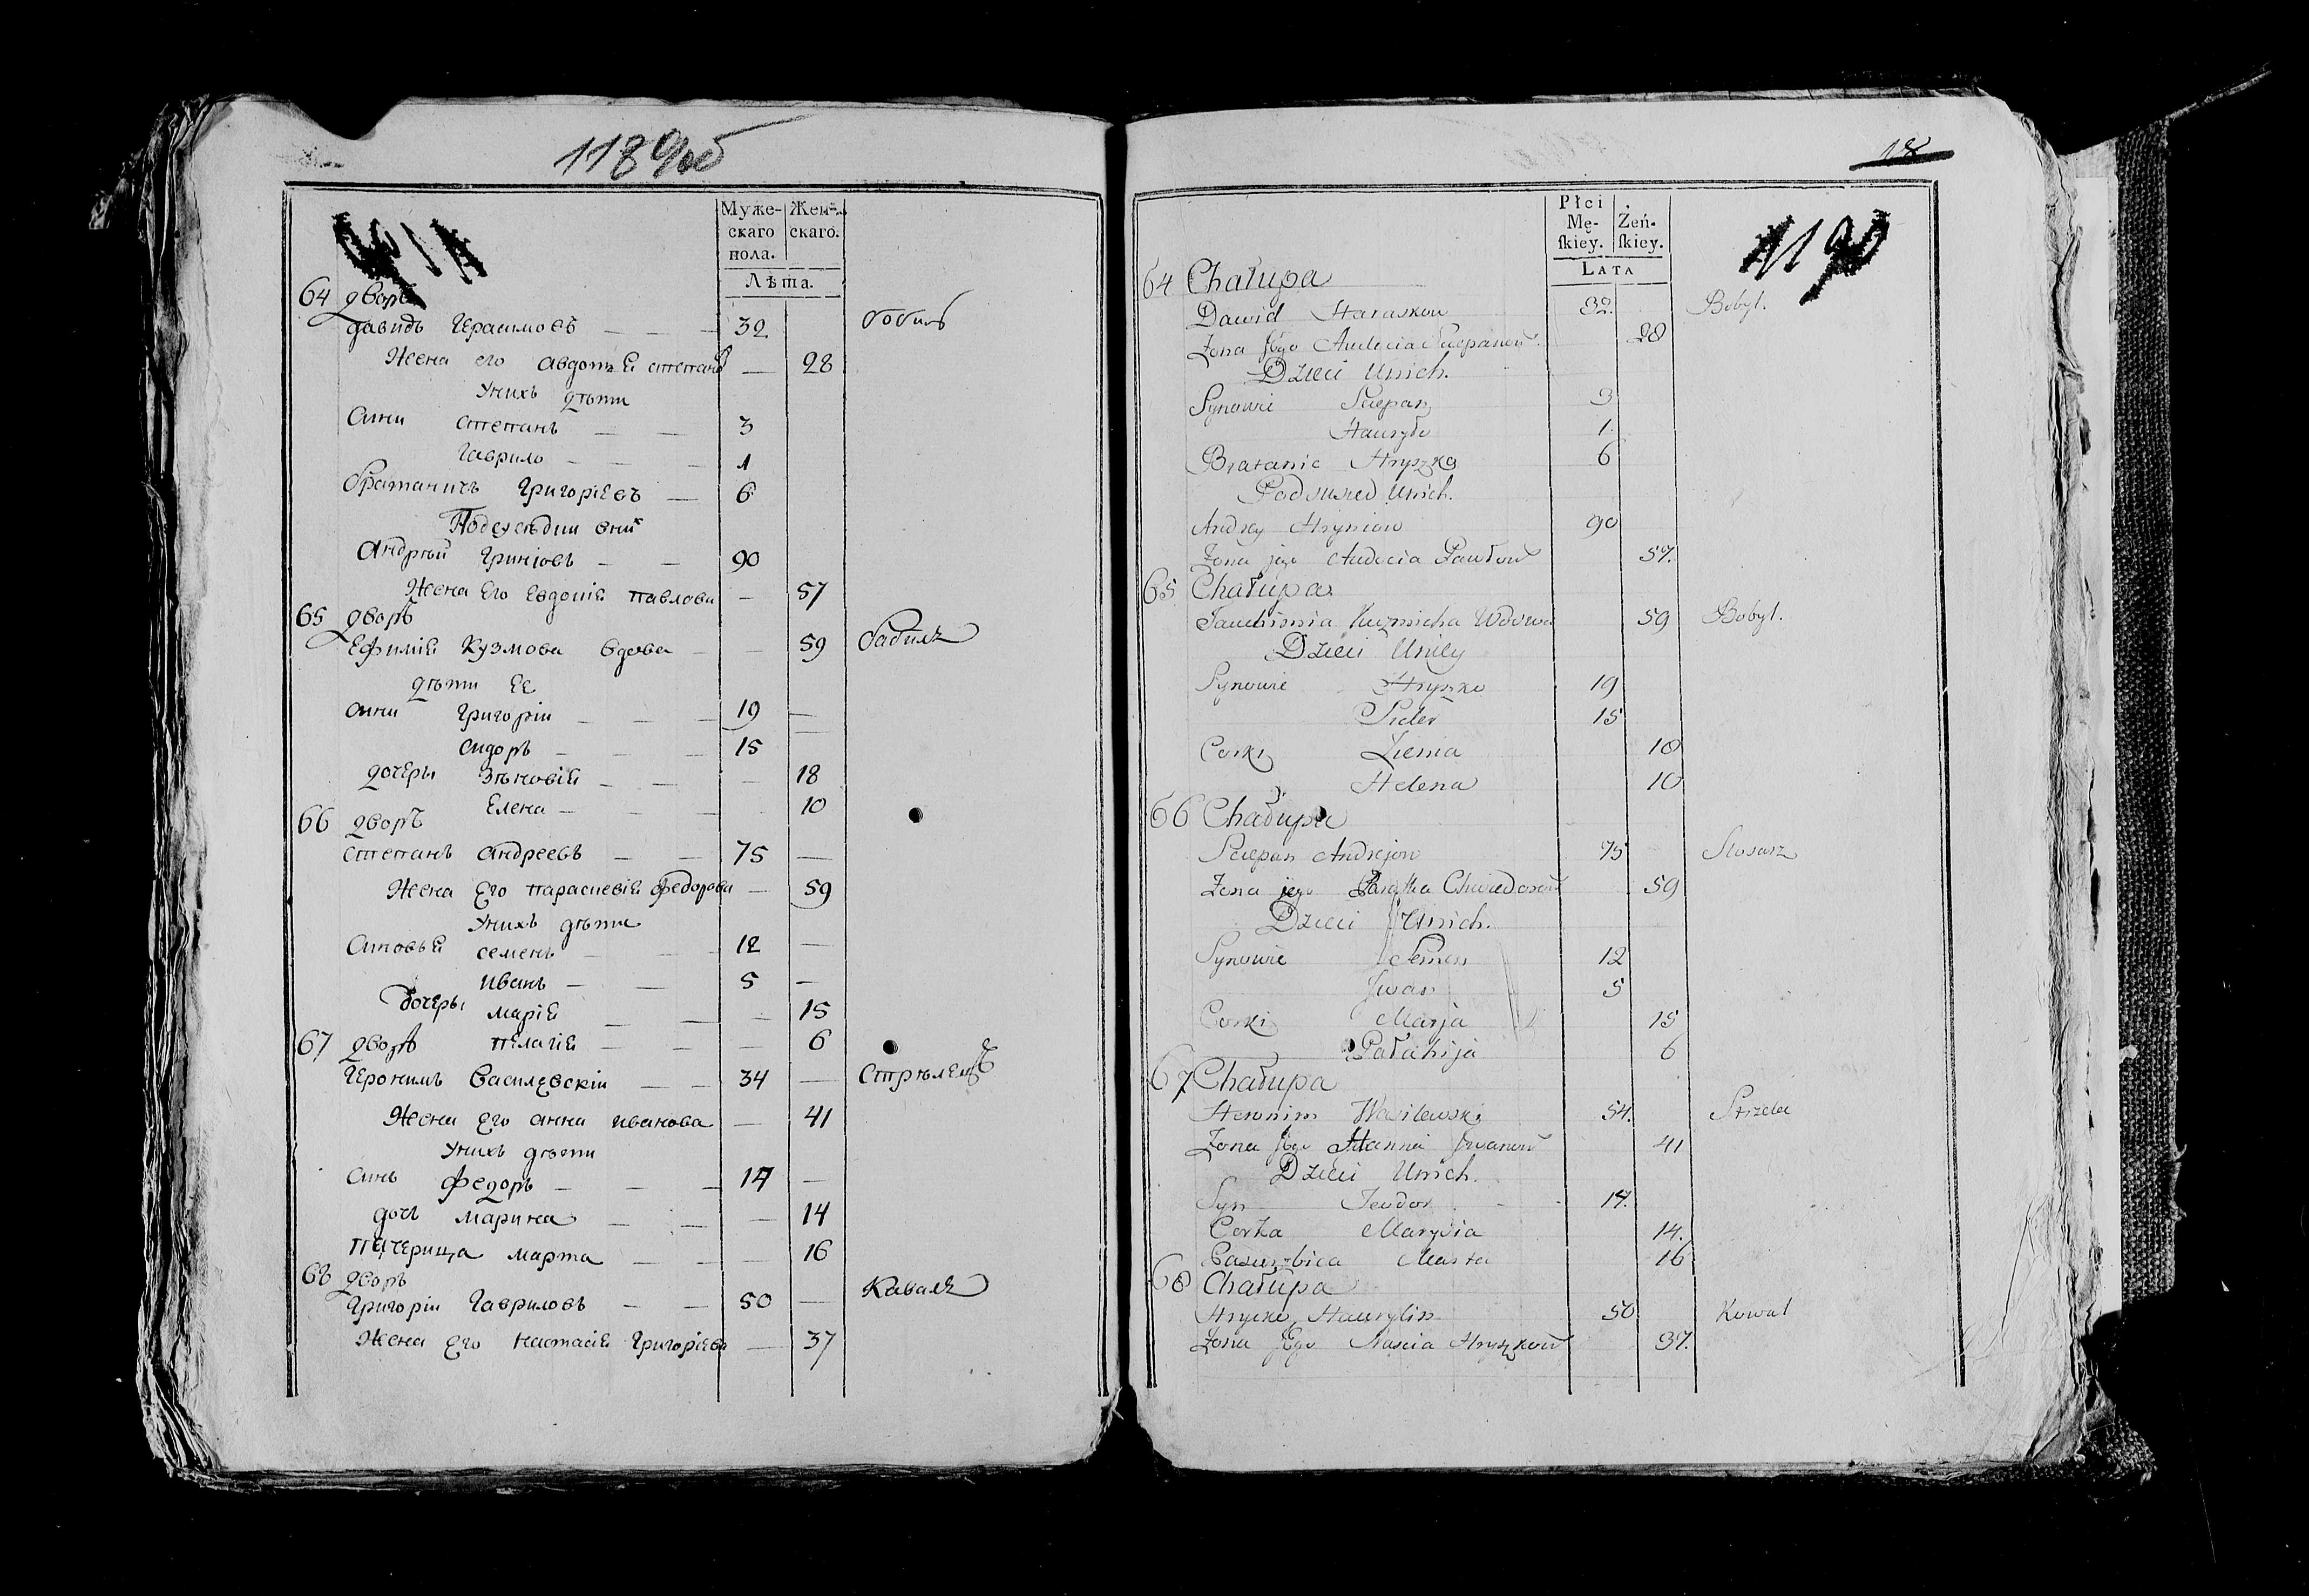 118 об
Муже-
скаго
пола.
Жен-
скаго.
Лѣта.
64 дворъ
давидъ Герасимовъ — — 32 бобиль
Жена его авдотъя степанов — 28
Унихъ дѣти
Сини степанъ — — 3
Гаврило — — 1
братаничъ григоріевъ — 6
Подсусѣдни вних
Андрѣй гриніовъ — — 90
Жена Его Евдокія павлова — 57
65 дворъ
Ефимія Кузмова вдова — — 59 бабиль
дѣти Ее
сини григоріи — — 19 —
сидоръ — — 15
дочеры Зѣновія — — 18
Елена — — 10
66 дворъ
степанъ андреевъ — — 75 —
Жена Его парасковія федорова — 59
Унихъ дѣти
Синовья семенъ — — 12 —
иванъ — — 5 —
дочеры марія — — 15
67 дворъ пелагія — — 6
Геронимъ Василевскіи — — 34 — Стрѣлец
Жена Его анна иванова — 41
Унихъ дѣти
Синъ федоръ — — 17 —
дочъ марина — — 14
пачерица марта — — 16
68 дворъ
григоріи Гавриловъ — — 50 — Коваль
Жена Его настасія григоріева — 37
18
1190
Płci
Mę-
ſkiey.
Żeń-
ſkiey.
LATA
64 Chałupa
Dawid Haraskow 32. Bobyl.
Zona Jego Audocia Sciepanow 28
Dzieci Unich.
Synowie Sciepan 3
Hauryło 1.
Bratanic Hryszka 6
Podsused Unich.
Andrey Hryniow 90
Zona jego Audocia Pawłow 57.
65 Chałupa
Jauchimia Kuzmicha Wdowa 59 Bobyl.
Dzieci Uniey
Synowie Hryszko 19
Sider 15
Corki Zienia 18
Helena 10
66 Chałupa
Sciepan Andrejow 75 Slosarz
Zona jego Paraska Chwiedorow 59
Dzieci Unich.
Synowie Semen 12
Jwan 5
Corki Marja 15
Pałahija 6
67 Chałupa
Heronim Wasilewski 54. Strzelec
Zona Jego Hanna Jwanow 41
Dzieci Unich.
Syn Teodor 17.
Corka Marysia 14.
Pasierzbica Marta 16
68 Chałupa
Hrycko Haurylin 50 Kowal
Zona Jego Nascia Hryszkow 37.